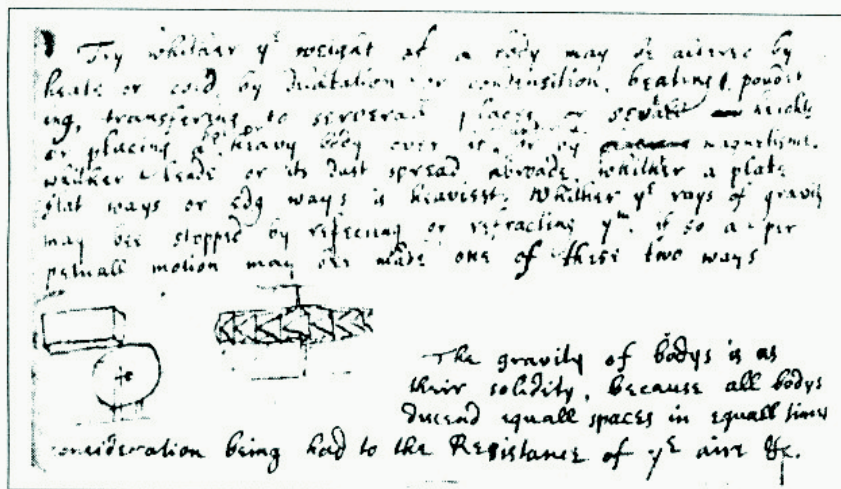 Try whither yᵉ weight of a body may be altered by
heate or cold, by dilatation or condensation, beating, powder
ing, transferring to serverall places or severall heights
or placing a hot or heavy body over it or under it, or by magnetisme.
whither leade or its dust spread abroade, whither a plate
flat ways or edg ways is heaviest. Whither yᵉ rays of gravity
may bee stopped by reflecting or refracting yᵐ, if so a per
petuall motion may bee made one of these two ways
The gravity of bodys is as
their solidity, because all bodys
descend equall spaces in equall times
consideration being had to the Resistance of yᵉ aire &c.